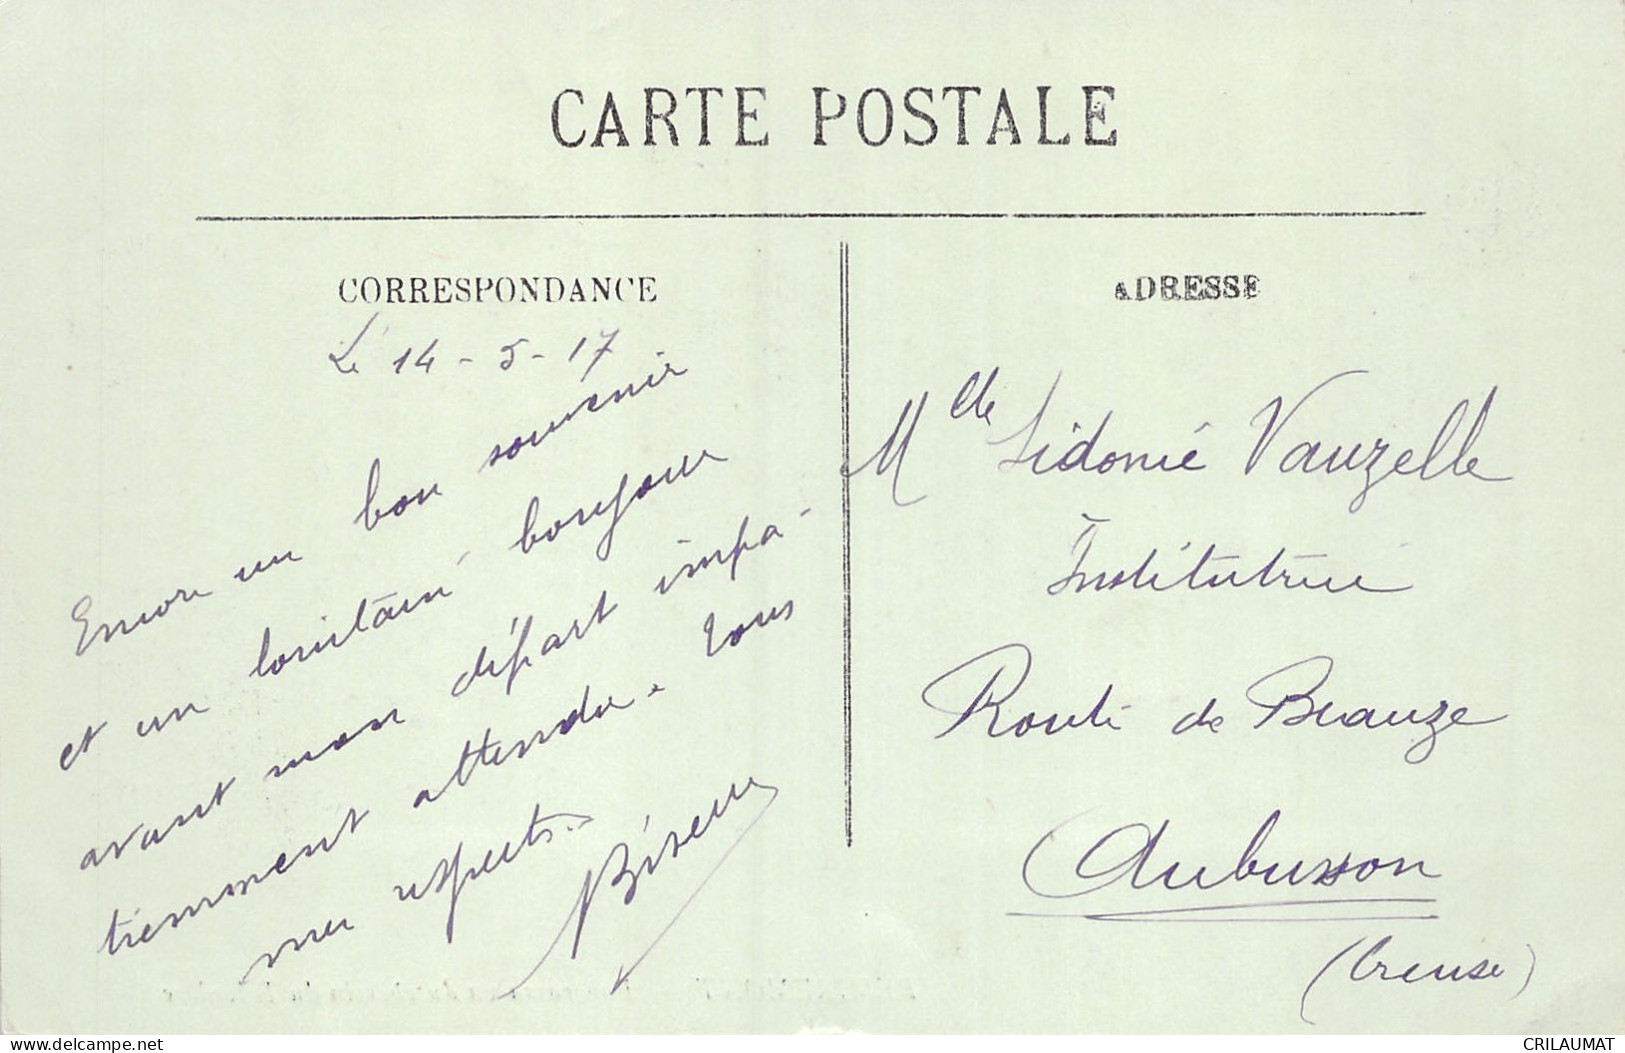 CARTE POSTALE
CORRESPONDANCE
Le 14-5-17
Encore un bon souvenir
et un lointain bonjour
avant mon départ impa-
tiemment attendu. Tous
mes respects..
ADRESSE
Mlle Sidonie Vauzelle
Institutrice
Route de Beauze
Aubusson
(Creuse)
www.delcampe.net
CRILAUMAT